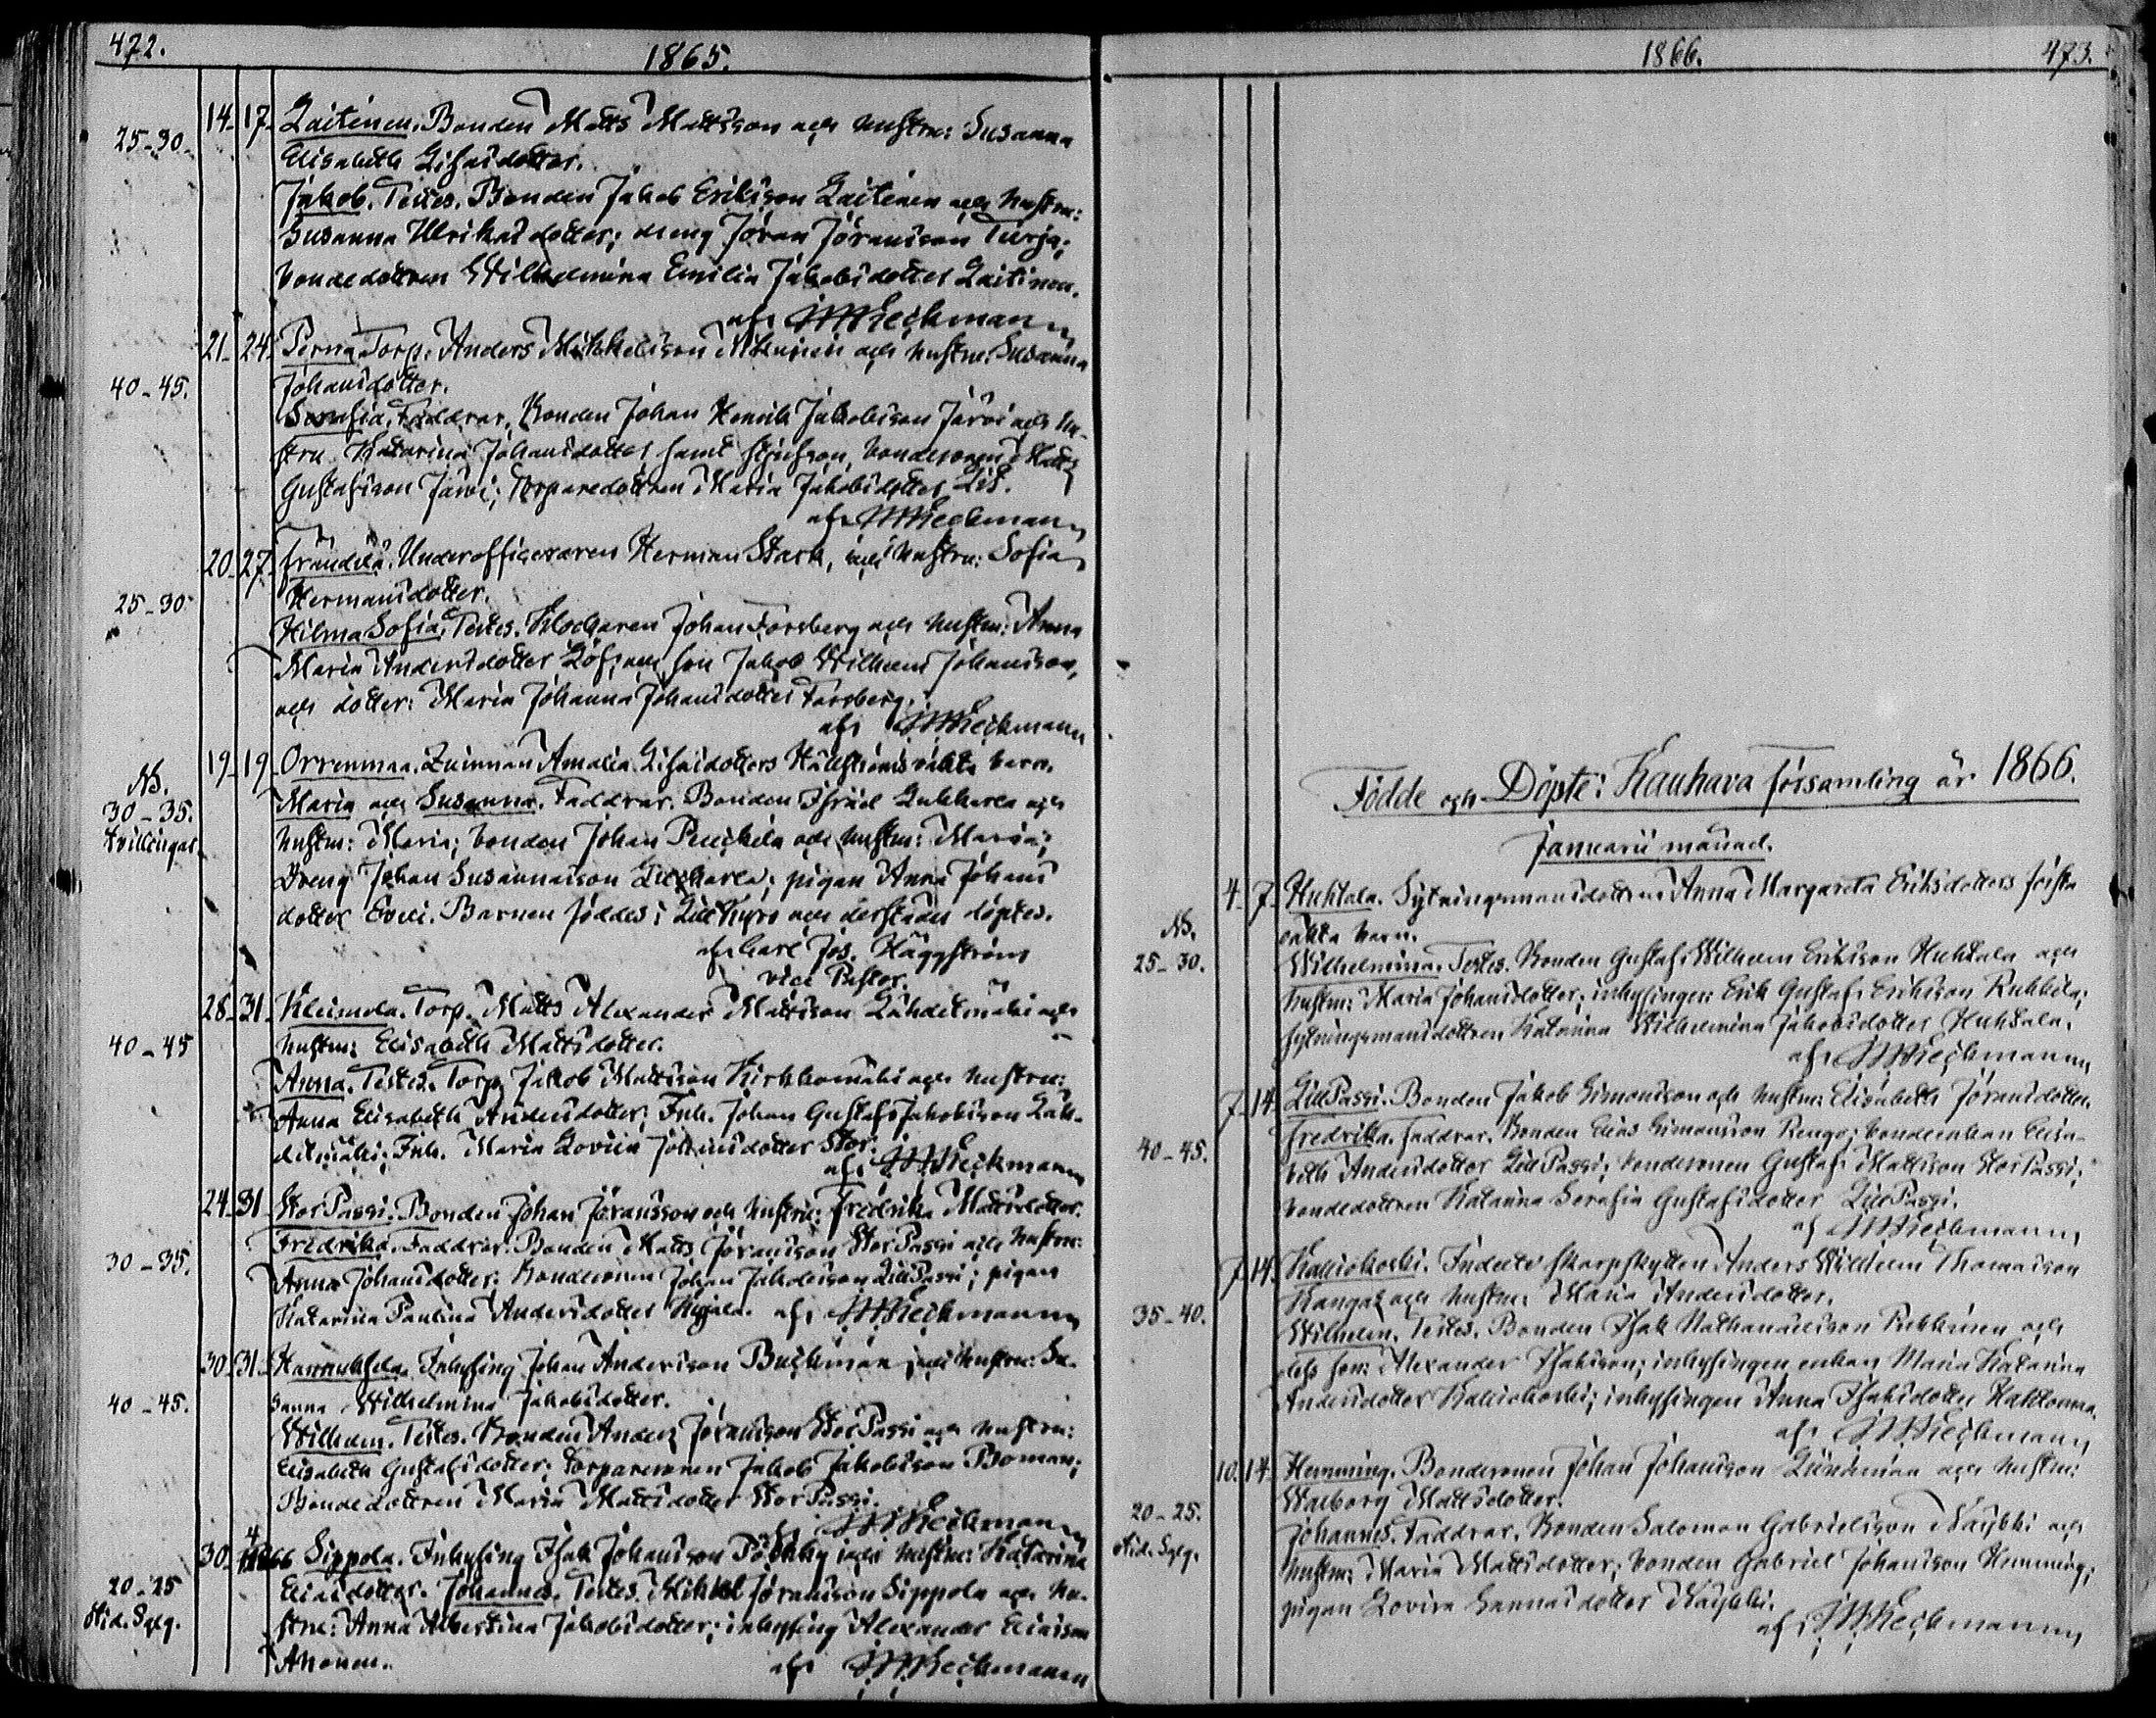 472.
1865.
25-30.
14. 17. Laitinen. Bonden Matts Mattsson och hustru: Susanna
Elisabeth Lisasdotter.
Jakob. Testes. Bonden Jakob Eriksson Laitinen och hustru:
Susanna Ulrikasdotter; dreng Jöran Jöransson Turja;
bondedottren Wilhelmina Emilia Jakobsdotter Laitinen.
af
40-45.
21. 24. Perna. Torp. Anders Mikkelsson och hustru Susanna
Johansdotter.
Serafia. Faddrar. Bonden Johan Henrik Jakobsson Järvi och hu-
stru Katarina Johansdotter samt bondesonen Matts
Gustafsson Järvi; Torparedottren Maria Jakobsdotter
af
25-30.
20. 27. Frändilä. Underofficeraren Herman Stark, och hustru: Sofia
Hermansdotter.
Hilma Sofia. Testes. Klockaren Johan Forsberg och hustru: Anna
Maria Andersdotter Löf, och son Jakob Wilhelm Johansson,
och dotter: Maria Johanna Johansdotter Forsberg.
af
NB.
30-35.
Tvillingar.
19. 19. Orrenmaa. Qvinnan Amalia Lisasdotters
Maria och Susanna. Faddrar. Bonden Isräel Lukkarla och
hustru: Maria; bonden Johan och hustru: Maria;
Dreng Johan Susannasson pigan Anna Johans
dotter Barnen föddes i Lill Kyro och derstädes döptes.
af Carl Jos. Häggström
vice Pastor.
40-45
28. 31. Kleimola. Torp. Matts Alexander Mattsson Lähdetmäki och
hustru: Elisabeth Mattsdotter.
Anna. Testes. Torp. Jakob Mattsson Kirkkomäki och hustru:
Anna Elisabeth Andersdotter; Inh. Johan Gustaf Jakobsson Läh-
detmäki; Inh. Maria Lovisa Johansdotter Stor.
af
30-35.
24. 31. Stor Passi. Bonden Johan Jöransson och hustru: Fredrika Mattsdotter.
Fredrika. Faddrar. Bonden Matts Jöransson Stor Passi och hustru:
Anna Johansdotter. Bondesonen Johan Jakobsson Lill Passi; pigan
Katarina Paulina Andersdotter af
40-45.
30. 31. Inhysing Johan Andersson och hustru: Su-
sanna Wilhelmina Jakobsdotter.
Wilhelm. Testes. Bonden Anders Jöransson Stor Passi och hustru:
Elisabeth Gustafsdotter; Torparesonen Jakob Jakobsson Boman;
Bondedottren Maria Mattsdotter Stor Passi.
af
20-25
30. Sippola. Inhysing Isak Johansson och hustru: Katarina
Eliasdotter. Johannes. Testes. Mikkel Jöransson Sippola och hu-
stru: Anna Albertina Jakobsdotter; inhysing Alexander Eliasson
Ahonen.
af
1866.
473.
Födde och Döpte i Kauhava församling år 1866.
Januarii månad.
NB.
25-30.
4. 7. Huhtala. Sytningsmansdottren Anna Margareta Eriksdotters första
oäkta barn.
Wilhelmina. Testes. Bonden Gustaf Wilhelm Eriksson Huhtala och
hustru: Maria Johansdotter; inhysingen Erik Gustaf Eriksson
sytningsmansdottren Katarina Wilhelmina Jakobsdotter Huhtala.
af
40-45.
7. 14. Lill Passi. Bonden Jakob Simonsson och hustru: Elisabeth Jöransdotter.
Fredrika. Faddrar. Bonden Elias Simonsson Rengo; bondeenkan Elisa-
beth Andersdotter Lill Passi; bondesonen Gustaf Mattsson Stor Passi;
bondedottren Katarina Serafia Gustafsdotter Lill Passi.
af
35-40.
7. 14. Kalliokoski. Indelte skarpskytten Anders Wilhelm Thomasson
Kangas och hustru: Maria Andersdotter.
Wilhelm. Testes. Bonden Isak Nathanaelsson Pukkinen och
dess son: Alexander Isaksson; inhysingen enkan Maria Katarina
Andersdotter Kalliokoski; inhysingen Anna Isaksdotter
af
20-25.
10. 14. Hemming. Bondesonen Johan Johansson och hustru:
Walborg Mattsdotter.
Johannes. Faddrar. Bonden Salomon Gabrielsson Näykki och
hustru: Maria Mattsdotter; bonden Gabriel Johansson Hemming;
pigan Lovisa Sannasdotter Näykki.
af